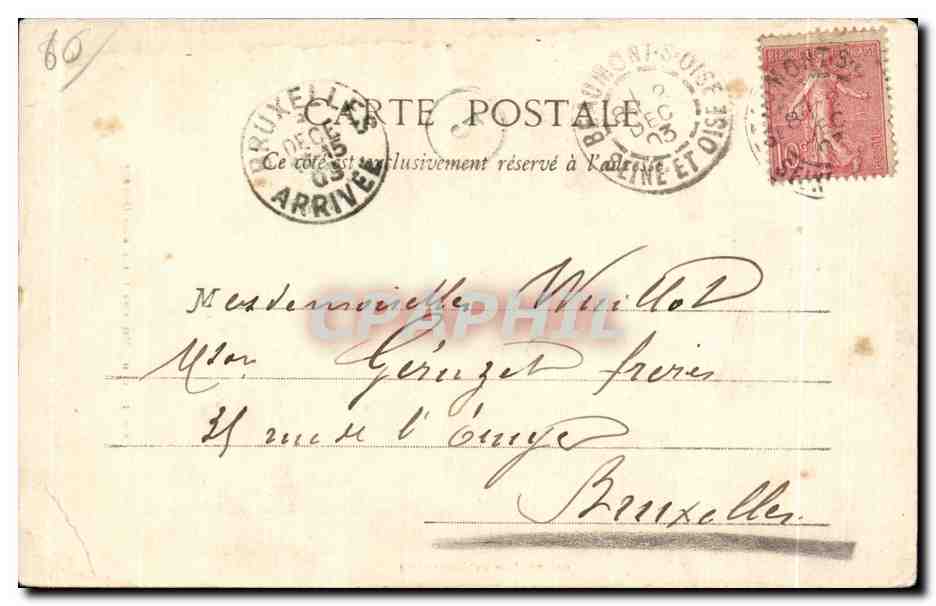 86
CARTE POSTALE
Ce côté est exclusivement réservé à l'adresse
BRUXELLES
DECE
03
ARRIVÉE
BEAUMONT-S-OISE
DEC
03
SEINE ET OISE
10
CPAPHIL
Mesdemoiselles Wuillot
Mson Géruzet frères
35 rue de l'
Bruxelles